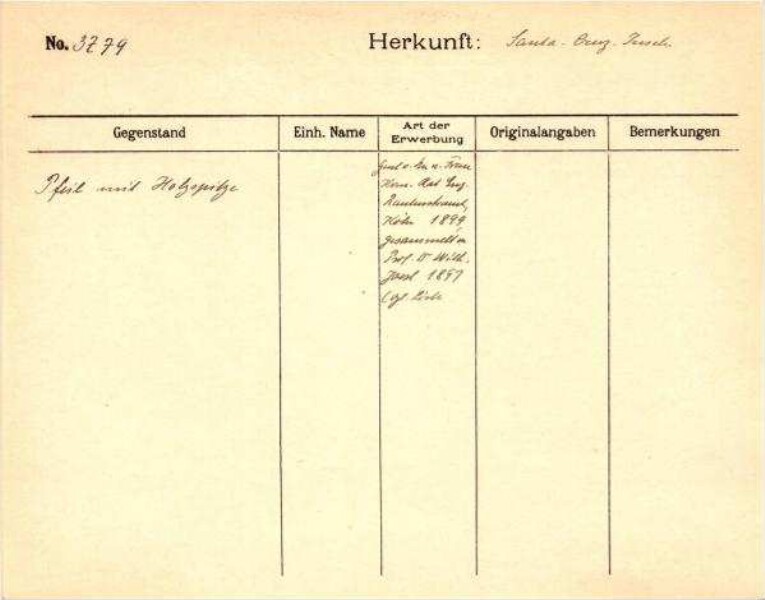 No. 3779 Herkunft: Santa-Cruz-Inseln
Gegenstand Einh. Name Art der Erwerbung Originalangaben Bemerkungen
Pfeil mit Holzspitze
Gesch. v. Hn. u. Frau
Kom. Rat Eug.
Rautenstrauch,
Köln 1899,
gesammelt v.
Prof. Dr Wilh.
Joest 1897